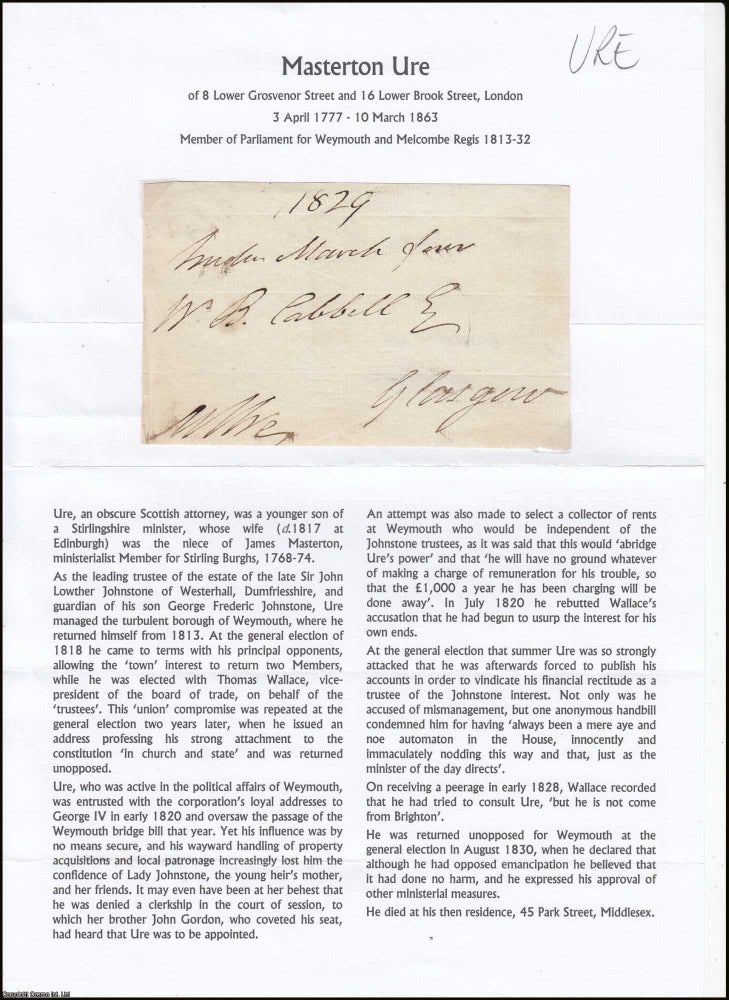 Masterton Ure
URE
of 8 Lower Grosvenor Street and 16 Lower Brook Street, London
3 April 1777 - 10 March 1863
Member of Parliament for Weymouth and Melcombe Regis 1813-32
1829
London March four
Wm B. Cabbell Eq
Glasgow
M Ure
Ure, an obscure Scottish attorney, was a younger son of
a Stirlingshire minister, whose wife (d.1817 at
Edinburgh) was the niece of James Masterton,
ministerialist Member for Stirling Burghs, 1768-74.
As the leading trustee of the estate of the late Sir John
Lowther Johnstone of Westerhall, Dumfriesshire, and
guardian of his son George Frederic Johnstone, Ure
managed the turbulent borough of Weymouth, where he
returned himself from 1813. At the general election of
1818 he came to terms with his principal opponents,
allowing the ‘town’ interest to return two Members,
while he was elected with Thomas Wallace, vice-
president of the board of trade, on behalf of the
‘trustees’. This ‘union’ compromise was repeated at the
general election two years later, when he issued an
address professing his strong attachment to the
constitution ‘in church and state’ and was returned
unopposed.
Ure, who was active in the political affairs of Weymouth,
was entrusted with the corporation’s loyal addresses to
George IV in early 1820 and oversaw the passage of the
Weymouth bridge bill that year. Yet his influence was by
no means secure, and his wayward handling of property
acquisitions and local patronage increasingly lost him the
confidence of Lady Johnstone, the young heir’s mother,
and her friends. It may even have been at her behest that
he was denied a clerkship in the court of session, to
which her brother John Gordon, who coveted his seat,
had heard that Ure was to be appointed.
An attempt was also made to select a collector of rents
at Weymouth who would be independent of the
Johnstone trustees, as it was said that this would ‘abridge
Ure’s power’ and that ‘he will have no ground whatever
of making a charge of remuneration for his trouble, so
that the £1,000 a year he has been charging will be
done away’. In July 1820 he rebutted Wallace’s
accusation that he had begun to usurp the interest for his
own ends.
At the general election that summer Ure was so strongly
attacked that he was afterwards forced to publish his
accounts in order to vindicate his financial rectitude as a
trustee of the Johnstone interest. Not only was he
accused of mismanagement, but one anonymous handbill
condemned him for having ‘always been a mere aye and
noe automaton in the House, innocently and
immaculately nodding this way and that, just as the
minister of the day directs’.
On receiving a peerage in early 1828, Wallace recorded
that he had tried to consult Ure, ‘but he is not come
from Brighton’.
He was returned unopposed for Weymouth at the
general election in August 1830, when he declared that
although he had opposed emancipation he believed that
it had done no harm, and he expressed his approval of
other ministerial measures.
He died at his then residence, 45 Park Street, Middlesex.
Copyright Cosmo Bd. Ltd